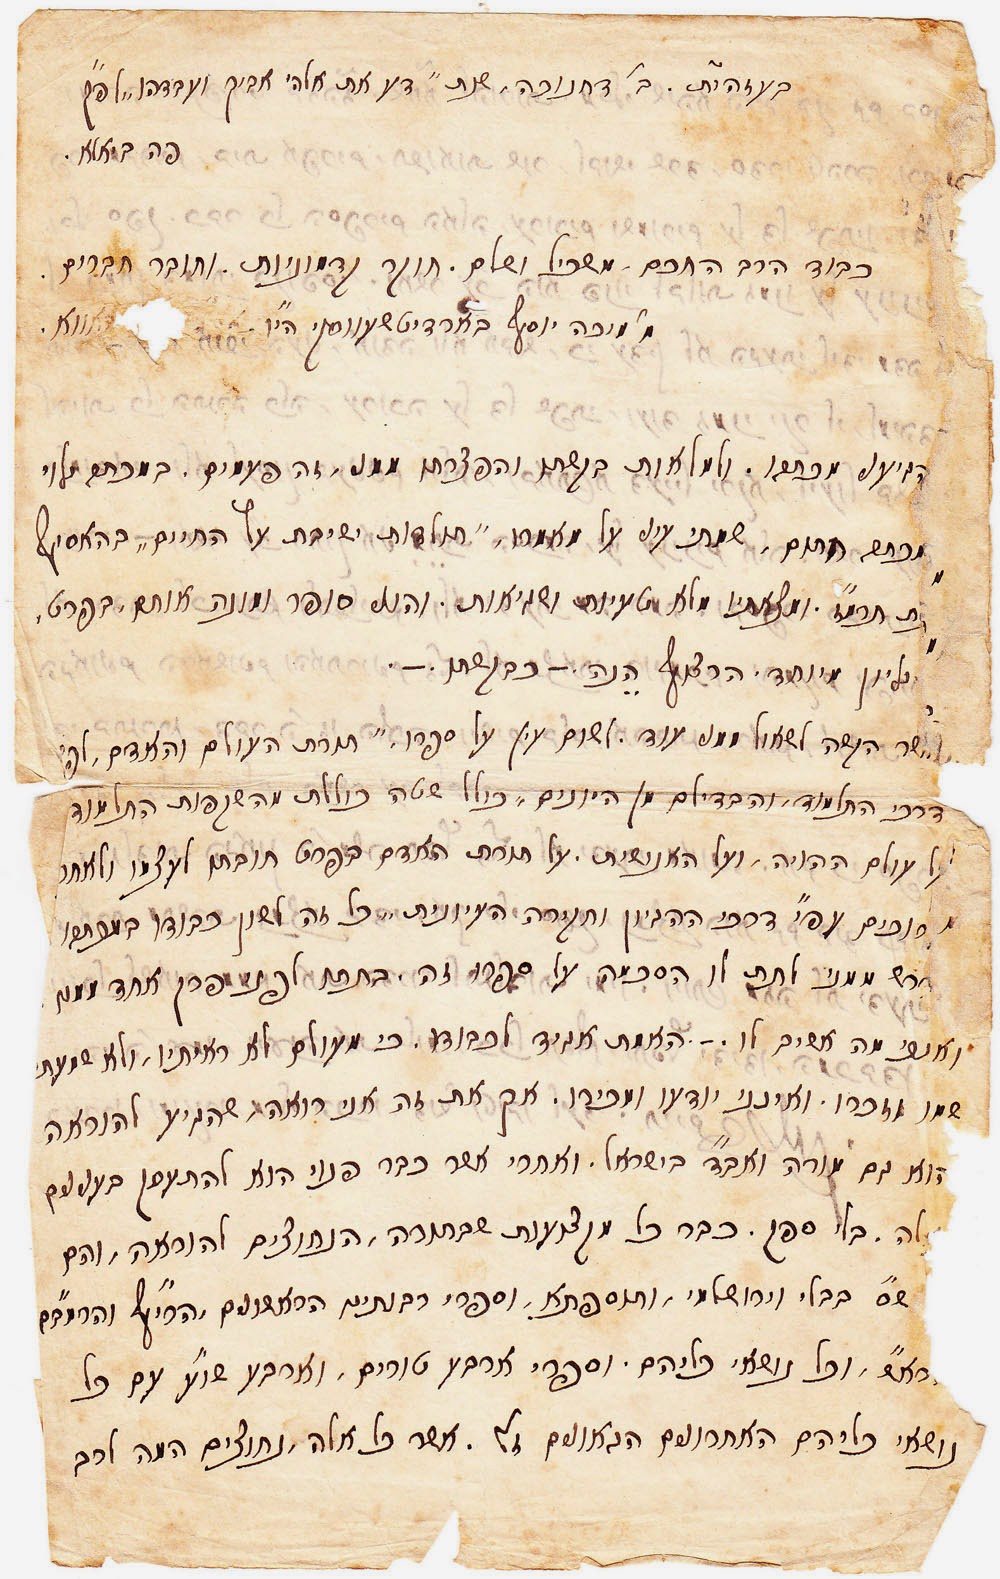 בעזהי״ת. ב׳ דחנוכה, שנת ״דע את אלהי אביך ועבדהו״ לפ״ק
פה ביאלא.
כבוד הרב החכם, משכיל ושלם. חוקר קדמוניות. וחובר חברים.
מ׳ מיכה יוסף בארדיטשעווסקי הי״ו
הגיעני מכתבו. ולמלאות בקשתו והפצרתו ממני, זה פעמים. במכתב גלוי
מכתב חתום, שמתי עיני על מאמרו, ״תולדות ישיבת עץ החיים״ בהאסיף
תרמ״ז. ומצאתיו מלא טעיות ושגיאות. והנני סופר ומונה אותם, בפרט,
גליון מיוחד. הרצוף הנה. — כבקשתו. —.
אשר הקשה לשאול ממני עוד. לשום עין על ספרו, ״תורת העולם והאדם, לפי
דרכי התלמוד, והבדילם מן היונים״ כולל שטה כוללת מהשקפות התלמוד
על עולם ההויה, ועל האנושית. על תורת האדם בפרט חובתו לעצמו ולאחרי
עפ״י דרכי ההגיון וחקירה העיונית. כל זה לשון כבודו במכתבו
ממני לתת לו הסכמה על ספרו זה. בתתו לפני פרק אחד ממנו.
ואנכי מה אשיב לו. —. האמת אגיד לכבודו. כי מעולם לא ראיתיו, ולא שמעתי
שמו וזכרו. ואינני יודעו ומכירו. אך את זה אני רואה, שהגיע להוראה
הוא גם מורה ואב״ד בישראל. ואחרי אשר כבר פנוי הוא להתעסק בענינים
אלה. בלי ספק. כבר כל מקצועות שבתורה, הנחוצים להוראה, והם
ש״ס בבלי וירושלמי, ותוספתא, וספרי רבותינו הראשונים, הרי״ף והרמב״ם
הרא״ש, וכל נושאי כליהם. וספרי ארבע טורים, וארבע שו״ע עם כל
נושאי כליהם האחרונים הגאונים ז״ל. אשר כל אלה, נחוצים המה לרב